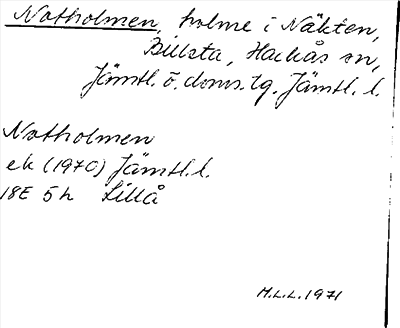 Notholmen, holme i Näkten,
Billsta, Hackås sn,
Jämtl. ö. doms. tg. Jämtl. l.
Notholmen
ek (1970) Jämtl. l.
18E 5h Lillå
H.L.L. 1971